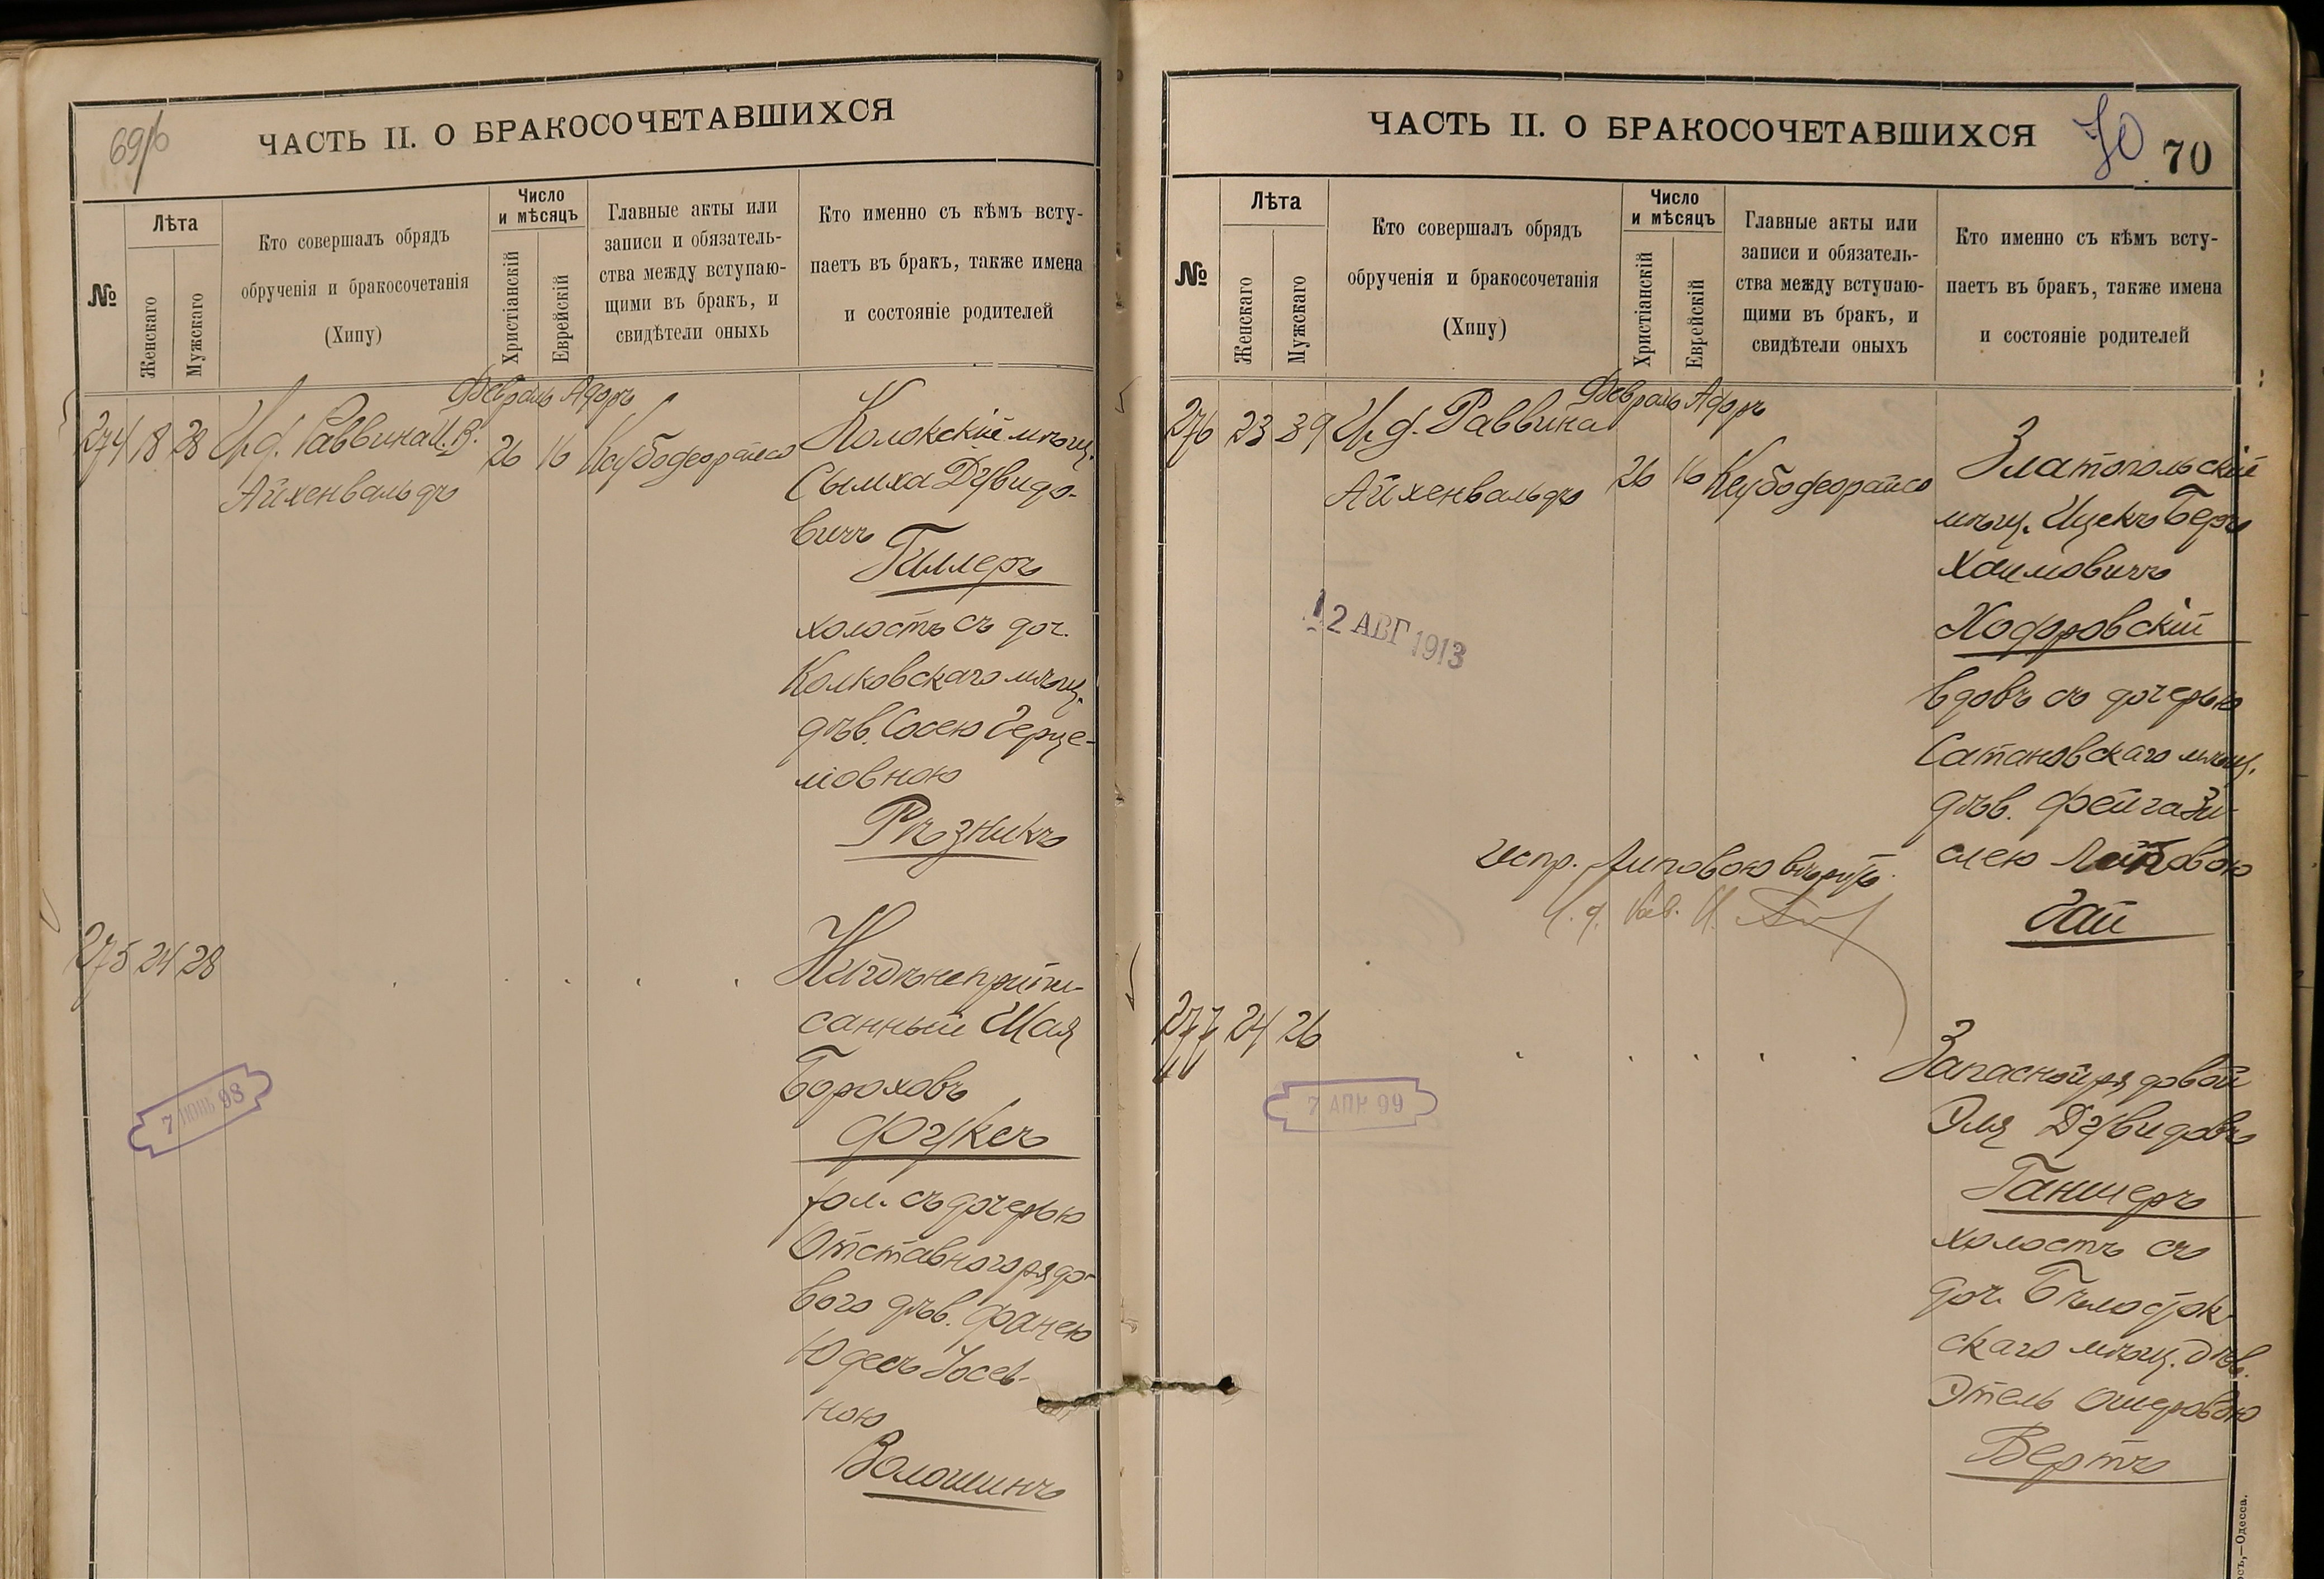 69/б
ЧАСТЬ II. О БРАКОСОЧЕТАВШИХСЯ
№
Лѣта
Женскаго
Мужскаго
Кто совершалъ обрядъ
обрученія и бракосочетанія
(Хипу)
Число
и мѣсяцъ
Христіанскій
Еврейскій
Главные акты или
записи и обязатель-
ства между вступаю-
щими въ бракъ, и
свидѣтели оныхъ
Кто именно съ кѣмъ всту-
паетъ въ бракъ, также имена
и состояніе родителей
Февраль Адаръ
274 18 28 И.д. Раввина И.В. 26 16
Айхенвальдъ
мѣщ.
Сымха Дувидо-
вичъ
Гиллеръ
холостъ съ доч.
Колковскаго мѣщ.
дѣв. Сосею Герце-
мовною
Рѣзникъ
275 24 28
Нигдѣ неприпи-
санный Шая
Бороховъ
Фуксъ
хол. съ дочерью
Отставного рядо-
вого дѣв. Фанею
Юдесъ Іосев-
ною
Волошинъ
7 ІЮНЬ 98
ЧАСТЬ II. О БРАКОСОЧЕТАВШИХСЯ
70
70
№
Лѣта
Женскаго
Мужскаго
Кто совершалъ обрядъ
обрученія и бракосочетанія
(Хипу)
Число
и мѣсяцъ
Христіанскій
Еврейскій
Главные акты или
записи и обязатель-
ства между вступаю-
щими въ бракъ, и
свидѣтели оныхъ
Кто именно съ кѣмъ всту-
паетъ въ бракъ, также имена
и состояніе родителей
Февраль Адаръ
276 23 39 И.д. Раввина
Айхенвальдъ 26 16
Златопольскій
мѣщ. Ицекъ Беръ
Хаимовичъ
Ходоровскій
вдовъ съ дочерью
Сатановскаго мѣщ.
дѣв. Фейга Зи-
слею
Гай
12 АВГ 1913
Испр. вѣрить
И. д. Рав. И.
277 24 26
Запасной рядовой
Эля Дувидовъ
Ганшеръ
холостъ съ
доч. Бѣлосток-
скаго мѣщ. дѣв.
Этель Ошеровою
Бертъ
7 АПР 99
—Одесса.